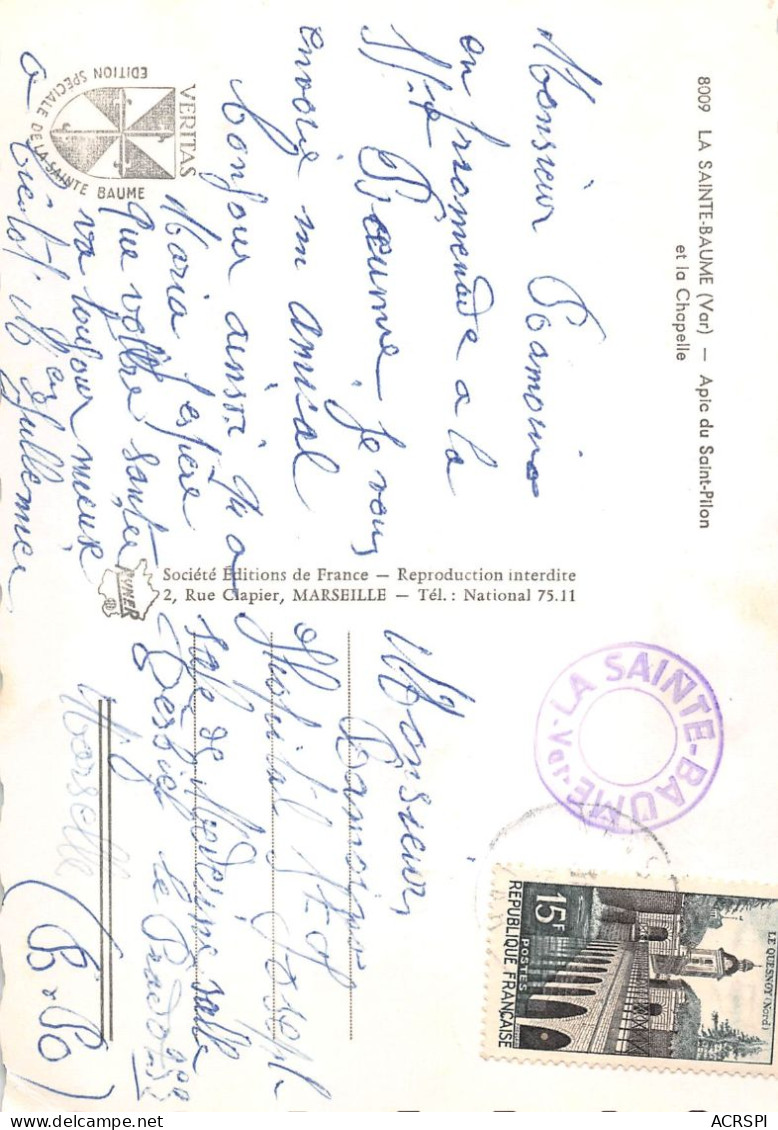 8009 LA SAINTE-BAUME (Var) — Apic du Saint-Pilon
et la Chapelle
Monsieur Ramoino
en promenade a la
Ste Baume, je vous
envoie un amical
bonjour ainsi qu'a
Maria J'espère
que vottre santer
va toujour mieux
a bientot
VERITAS
EDITION SPÉCIALE DE LA SAINTE BAUME
Société Éditions de France — Reproduction interdite
2, Rue Clapier, MARSEILLE — Tél. : National 75.11
Monsieur
Ramoino
Hopital St Joseph
salle de Medecine salle
le Prado
Marseille
(B. Rho)
LA SAINTE-BAUME
Var
LE QUESNOY (Nord)
15F
POSTES
REPUBLIQUE FRANÇAISE
ACRSPI